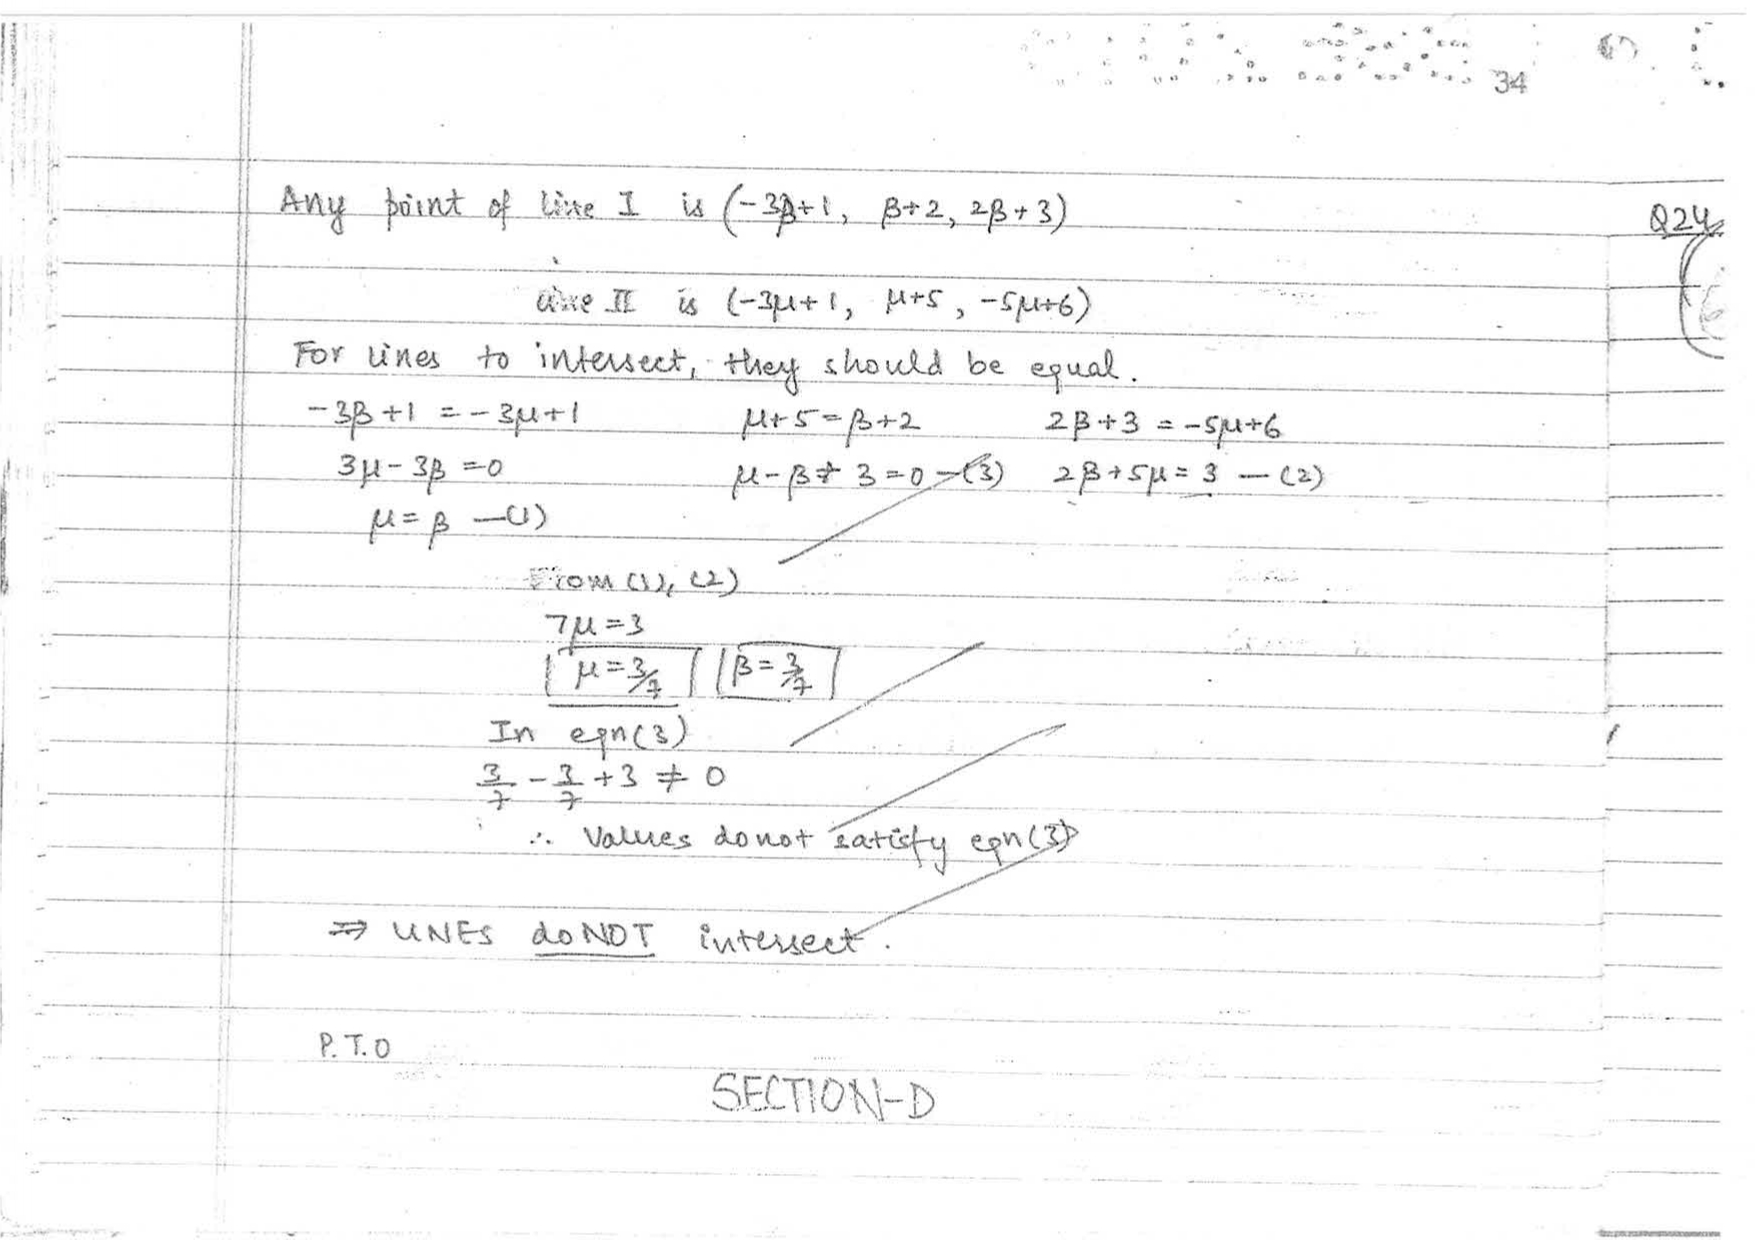 34
Any point of line I is (-3β+1, β+2, 2β+3)
Q24
line II is (-3μ+1, μ+5, -5μ+6)
For lines to intersect, they should be equal.
-3β+1 = -3μ+1 μ+5=β+2 2β+3 = -5μ+6
3μ-3β=0 μ-β+3=0 -(3) 2β+5μ=3 -(2)
μ=β -(1)
From (1), (2)
7μ=3
μ=3/7 β=3/7
In eqn(3)
3/7 - 3/7 + 3 ≠ 0
∴ Values donot satisfy eqn(3)
⇒ LINES doNOT intersect.
P.T.O
SECTION-D